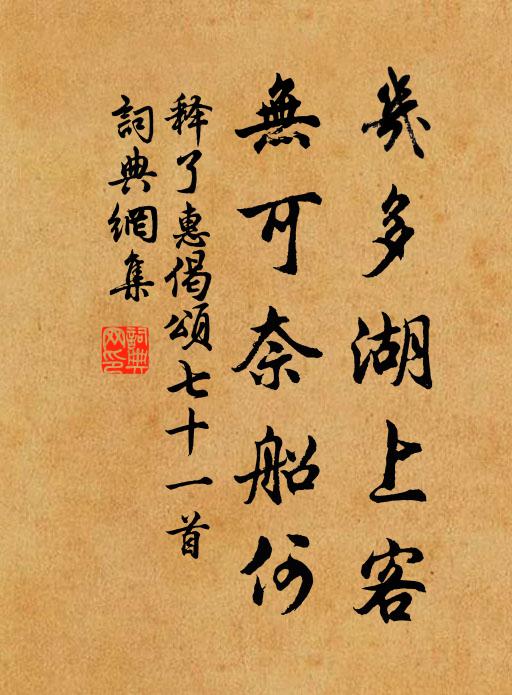 幾多湖上客
無可奈船何
释了惠偈頌七十一首
詞典網集
詞典
网印